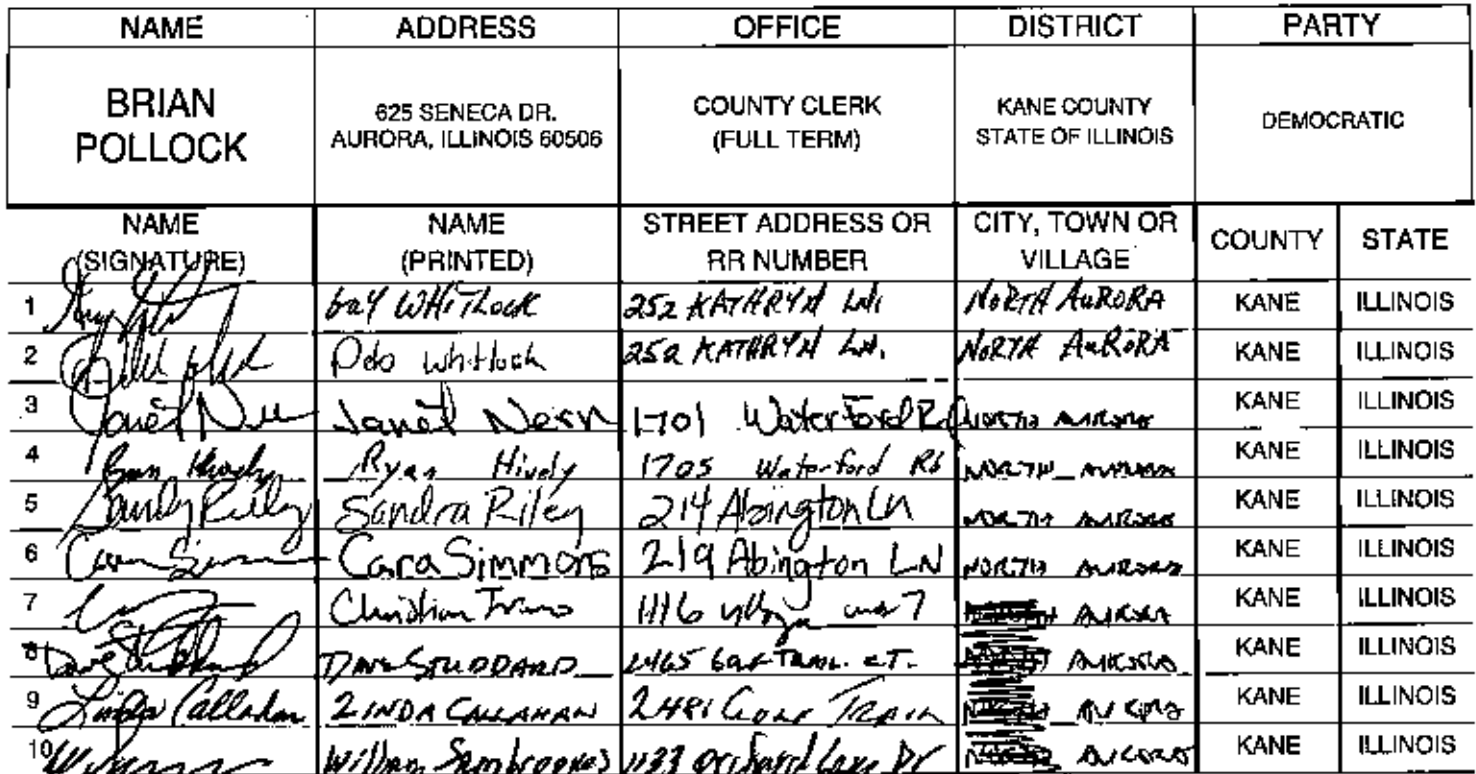 NAME ADDRESS OFFICE DISTRICT PARTY
BRIAN POLLOCK
625 SENECA DR.
AURORA, ILLINOIS 60506
COUNTY CLERK
(FULL TERM)
KANE COUNTY
STATE OF ILLINOIS
DEMOCRATIC
NAME (SIGNATURE) NAME (PRINTED) STREET ADDRESS OR RR NUMBER CITY, TOWN OR VILLAGE COUNTY STATE
1 WHITLOCK 252 KATHRYN LN. NORTH AURORA KANE ILLINOIS
2 Whitlock 252 KATHRYN LN. NORTH AURORA KANE ILLINOIS
3 Janet Janet 1701 Waterford Rd NORTH AURORA KANE ILLINOIS
4 Ryan Hively 1705 Waterford Rd NORTH AURORA KANE ILLINOIS
5 Sandy Riley Sandra Riley 214 Abington Ln NORTH AURORA KANE ILLINOIS
6 Cara Simmons 219 Abington LN NORTH AURORA KANE ILLINOIS
7 Christian 1116 AURORA KANE ILLINOIS
8 Dave Studdard DAVE STUDDARD 2465 CT. AURORA KANE ILLINOIS
9 Linda Callahan LINDA CALLAHAN 2481 AURORA KANE ILLINOIS
10 William 1133 Orchard Lake Dr AURORA KANE ILLINOIS